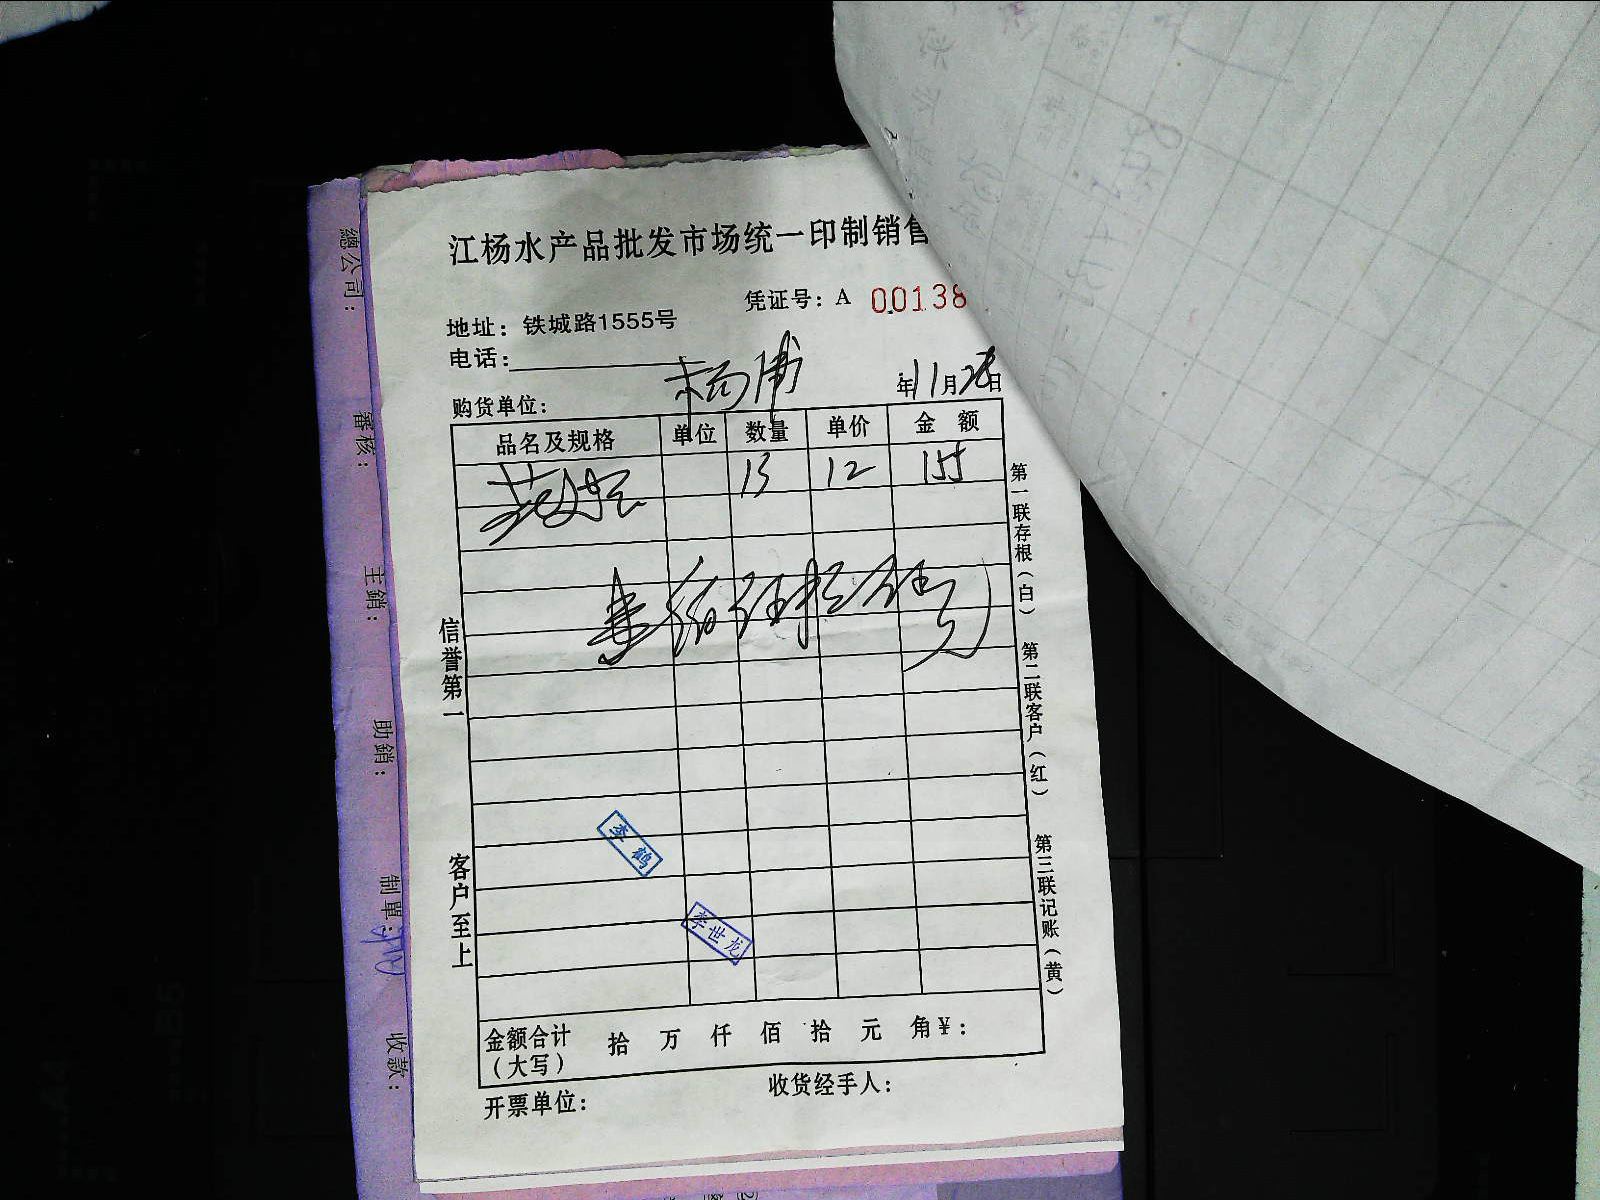 江杨水产品批发市场统一印制销售
凭证号：A 00138
地址：铁城路1555号
电话：
购货单位： 杨浦
年11月28日
品名及规格 单位 数量 单价 金 额
13 12 155
壹佰伍拾伍元
信誉第一
客户至上
第一联存根（白）
第二联客户（红）
第三联记账（黄）
李鹤
李世龙
金额合计（大写） 拾 万 仟 佰 拾 元 角￥：
开票单位：
收货经手人：
總公司：
審核：
主銷：
助銷：
制單：
收款：